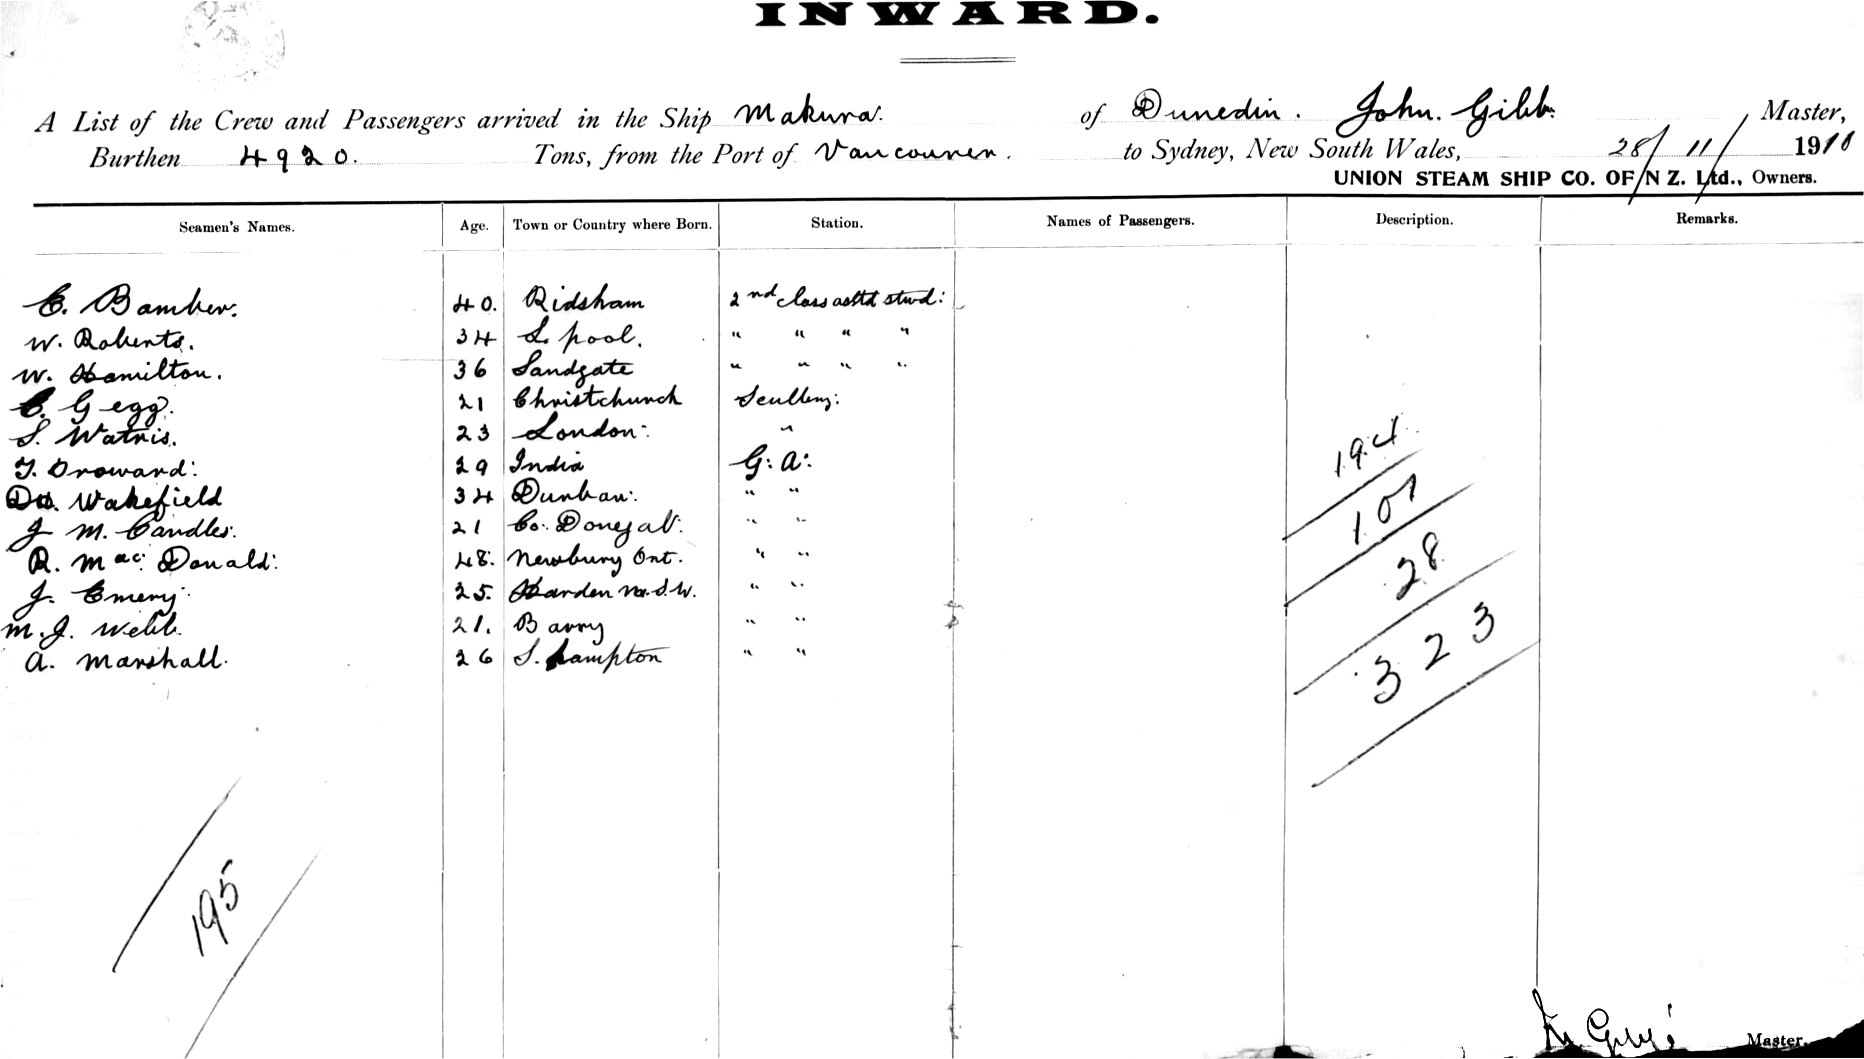 INWARD.
A List of the Crew and Passengers arrived in the Ship Makura. of Dunedin. John. Gibb. Master,
Burthen 4920. Tons, from the Port of Vancouver. to Sydney, New South Wales, 28/11/1910
UNION STEAM SHIP CO. OF N Z. Ltd., Owners.
Seamen's Names. Age. Town or Country where Born. Station. Names of Passengers. Description. Remarks.
C. Bamber. 40. Ridsham 2nd class asstd stwd:
W. Roberts. 34 L. pool. " " " "
W. Hamilton. 36 Sandgate " " " "
C. Gegg. 21 Christchurch Scullery:
S. Watris. 23 London: "
T. Droward: 29 India G: A:
Wakefield 34 Durban: " "
J M. Candles: 21 Co: Donegal: " "
R. Mac: Donald: 48: Newbury Ont. " "
J. Emery: 25. Harden N.S.W. " "
M. J. Webb. 21. Barry " "
A. Marshall. 26 S. hampton " "
194
101
28
323
195
Master.